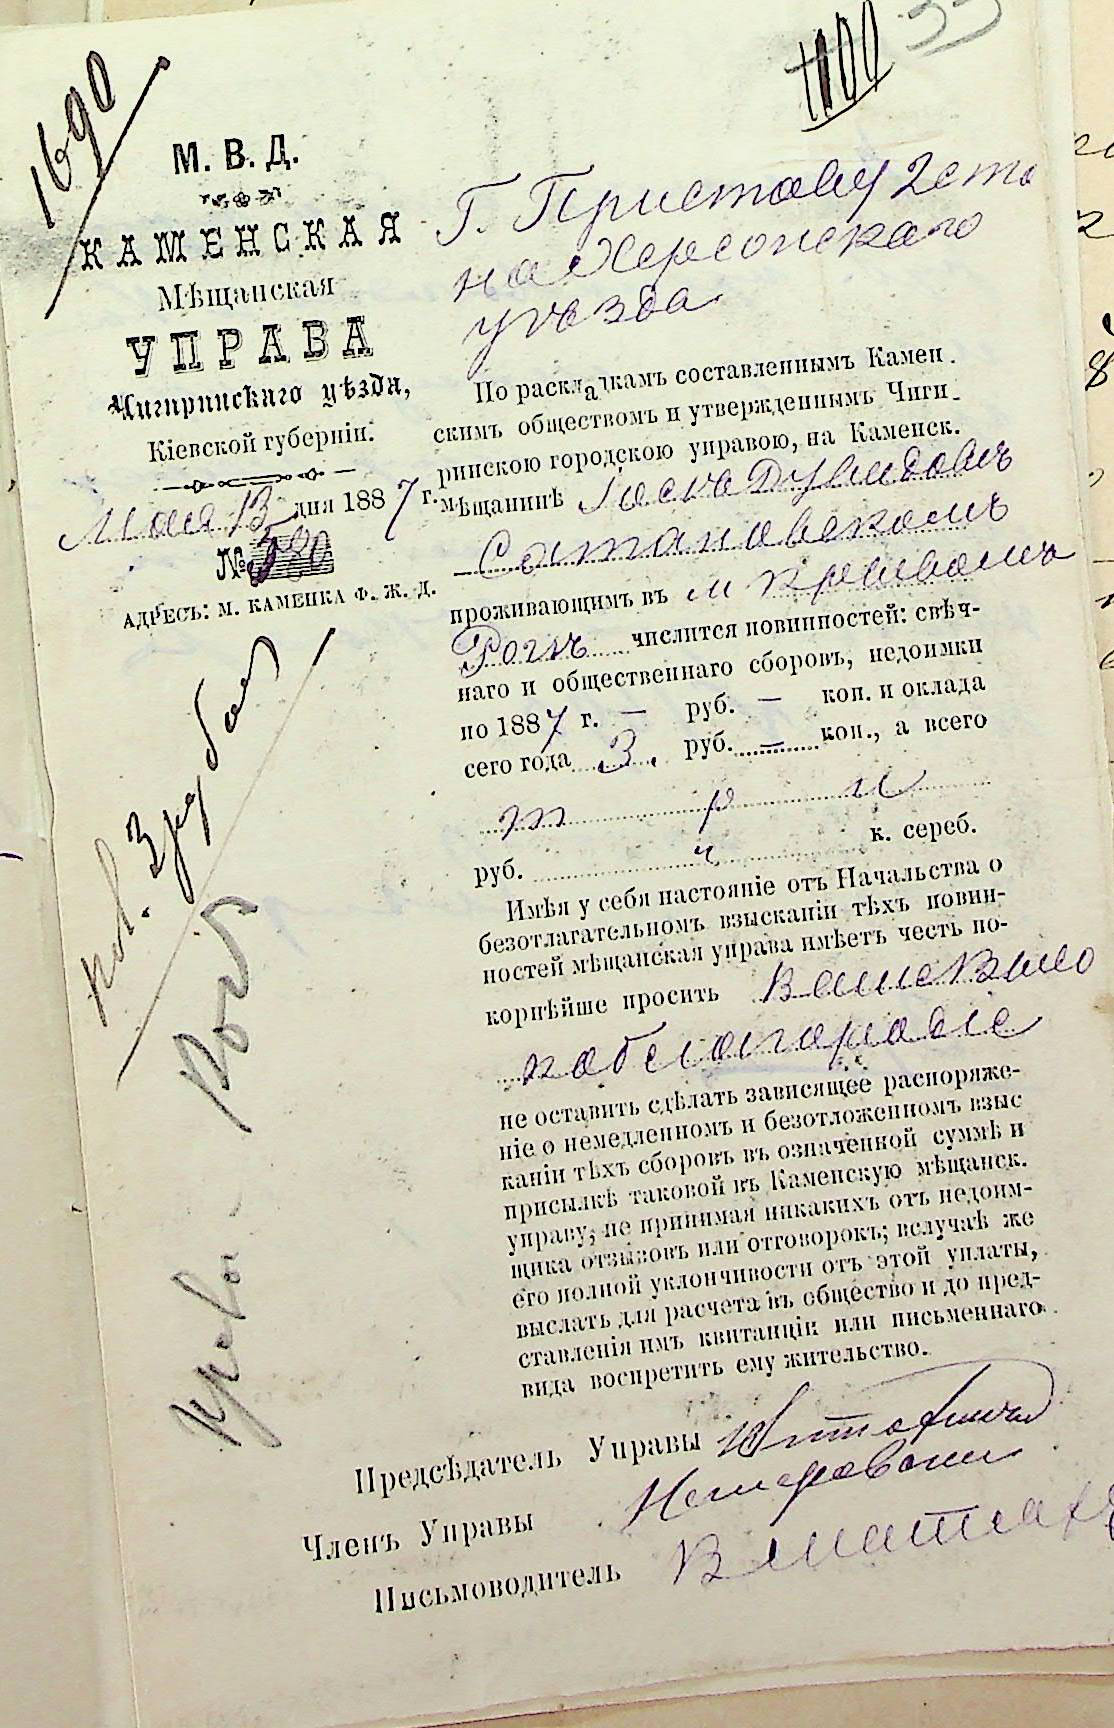 1690
1100
М. В. Д.
КАМЕНСКАЯ
Мѣщанская
УПРАВА
Чигиринскаго уѣзда,
Кіевской губерніи.
Мая 13 дня 1887 г.
№ 580
АДРЕСЪ: М. КАМЕНКА Ф. Ж. Д.
Г. Приставу 2 ста
на Херсонскаго
уѣзда
По раскладкамъ составленнымъ Камен.
скимъ обществомъ и утвержденнымъ Чиги.
ринскою городскою управою, на Каменск.
мѣщанинѣ Іоськъ Дувидовъ
Сатановскомъ
проживающимъ въ м Кривомъ
Рогѣ числится повинностей: свѣч-
наго и общественнаго сборовъ, недоимки
по 1887 г. — руб. — коп. и оклада
сего года 3. руб. — коп., а всего
три
руб. ч к. сереб.
Имѣя у себя настояніе отъ Начальства о
безотлагательномъ взысканіи тѣхъ повин-
ностей мѣщанская управа имѣетъ честь по-
корнѣйше просить Ваше Высо
коблагородіе
не оставить сдѣлать зависящее распоряже-
ніе о немедленномъ и безотложенномъ взыс
каніи тѣхъ сборовъ въ означенной суммѣ и
присылкѣ таковой въ Каменскую мѣщанск.
управу; не принимая никакихъ отъ недоим-
щика отзывовъ или отговорокъ; вслучаѣ же
его полной уклончивости отъ этой уплаты,
выслать для расчета въ общество и до пред-
ставленія имъ квитанціи или письменнаго
вида воспретить ему жительство.
Предсѣдатель Управы
Членъ Управы
Письмоводитель
пов. 3 руб.
Криво - Рогъ